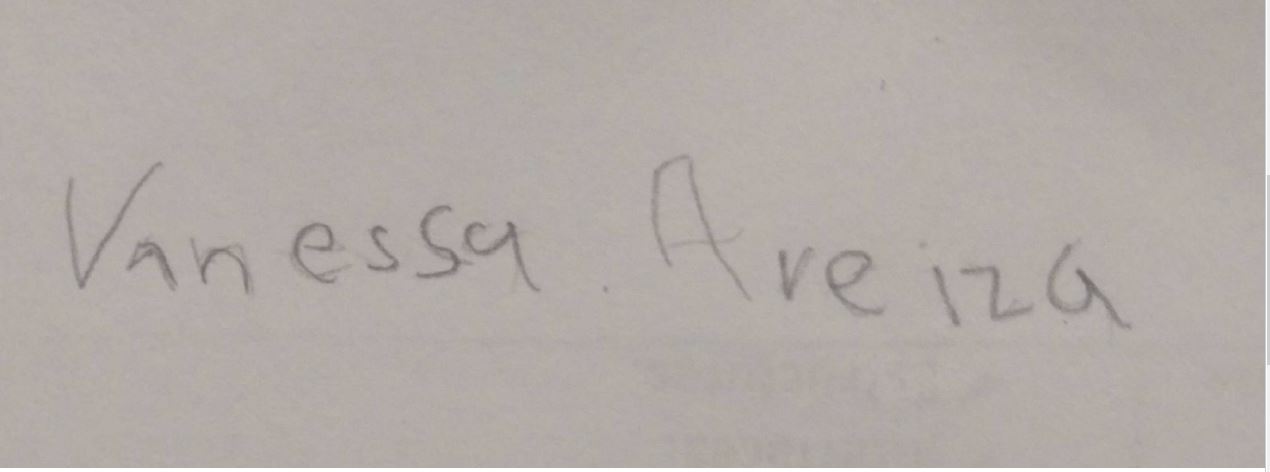 Vanessa. Areiza